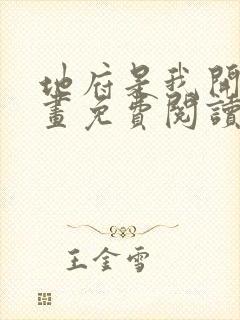 地府是我開
畫免費閱讀
王金雪